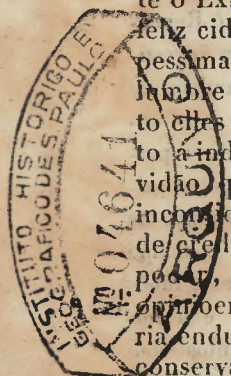 te o Ex
feliz cid
pessima
lumbre
to elles
to a ind
vidão
de
poder,
opin oen
ria endu
conserva
INSTITUTO HISTORICO E
GEOGRAFICO DE S. PAULO
Nº 04641
ARQUIVO